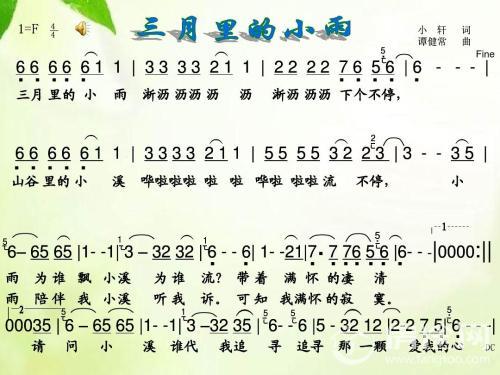 三月里的小雨
1=F 4/4
小轩 词
谭健常 曲
Fine
66 66 61 1 | 33 33 21 1 | 22 22 76 56 | 6 - - - |
三月里的小 雨 淅沥沥沥 沥 淅沥沥沥 下个不停,
66 66 61 1 | 3333 21 1 | 33 32 23 | 3 - - 35 |
山谷里的小 溪 哗啦啦啦 啦 哗啦啦啦流 不停, 小
6- 65 65 |1--1|3- 32 32 |6--6 |1--21|7· 7 76 56 |6---:|0000:||
雨 为谁 飘 小溪 为谁 流? 带着 满 怀的凄 清
雨 陪伴 我 小溪 听我 诉. 可知 我满怀的寂 寞.
00035 |6-65 65 |1--1|3- 32 32|6--5|5- 32 12|2-2 75|6---|
请 问 小 溪 谁代 我追 寻 追寻 那一颗 爱我的心
DC